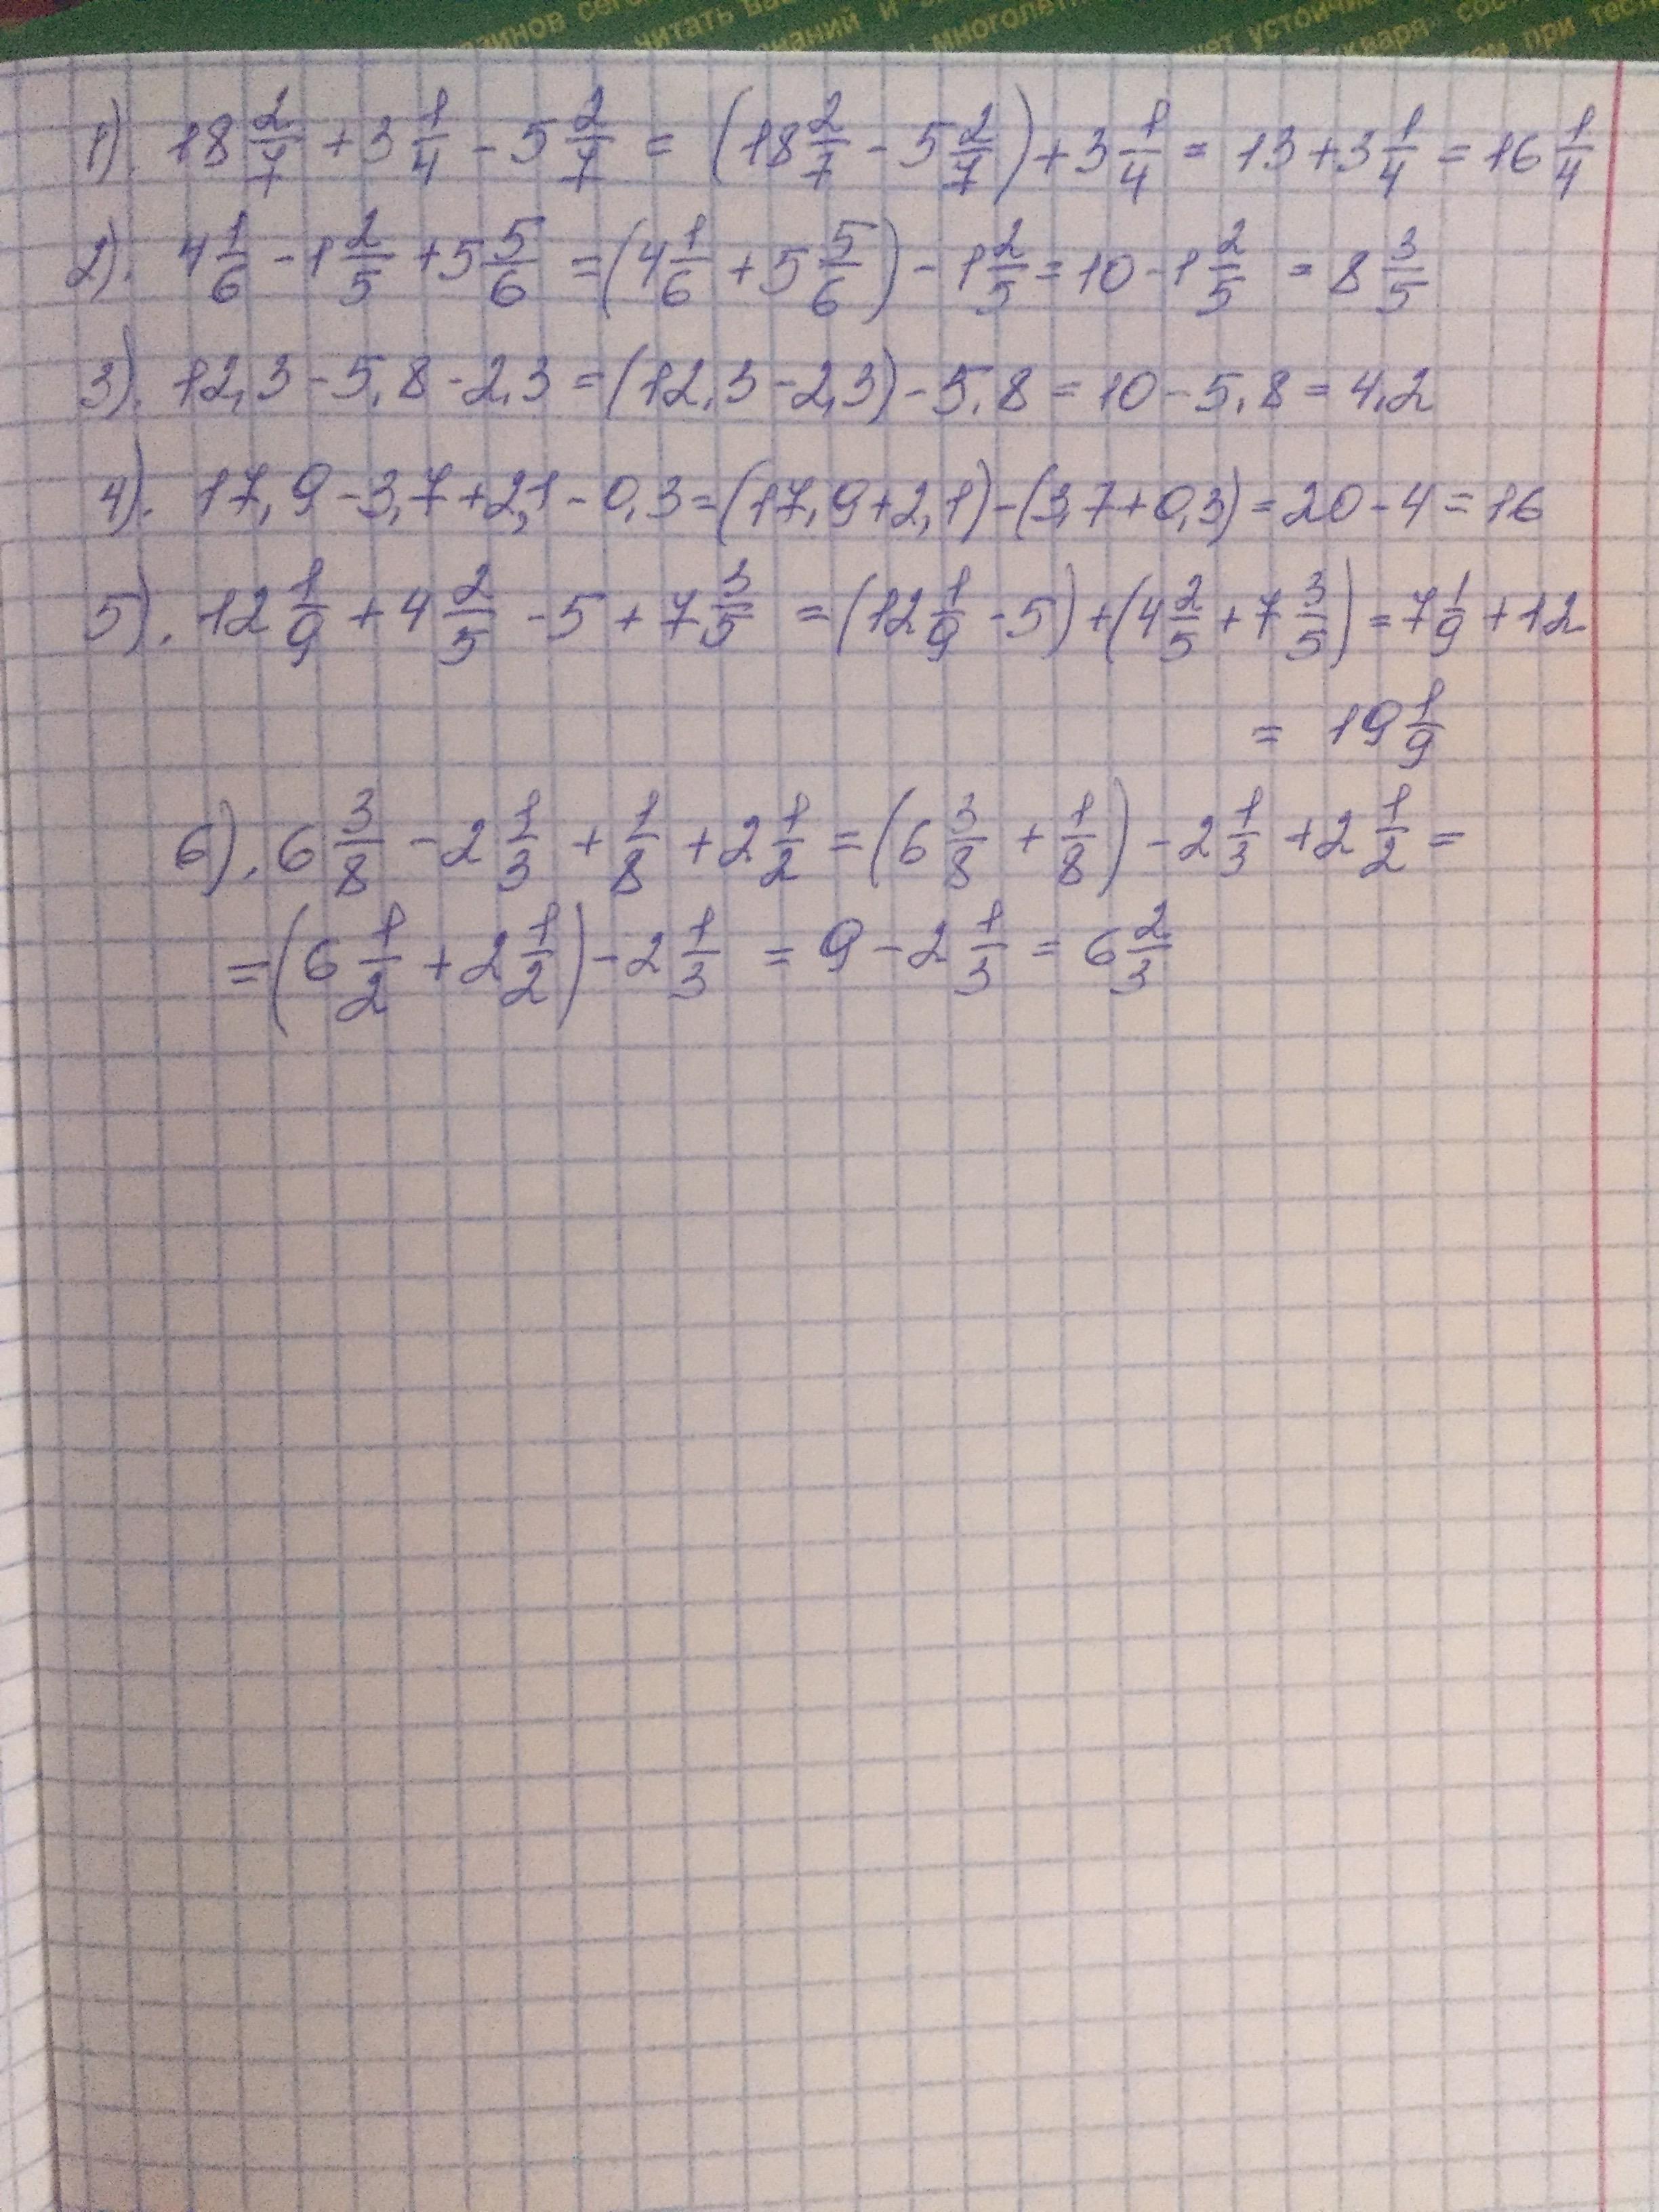 азинов сего
читать ва
знаний и э
и многолетн
ует устойчи
букваря" сос
ем при тести
1). 18 2/7 + 3 1/4 - 5 2/7 = (18 2/7 - 5 2/7) + 3 1/4 = 13 + 3 1/4 = 16 1/4
2). 4 1/6 - 1 2/5 + 5 5/6 = (4 1/6 + 5 5/6) - 1 2/5 = 10 - 1 2/5 = 8 3/5
3). 12,3 - 5,8 - 2,3 = (12,3 - 2,3) - 5,8 = 10 - 5,8 = 4,2
4). 17,9 - 3,7 + 2,1 - 0,3 = (17,9 + 2,1) - (3,7 + 0,3) = 20 - 4 = 16
5). 12 1/9 + 4 2/5 - 5 + 7 3/5 = (12 1/9 - 5) + (4 2/5 + 7 3/5) = 7 1/9 + 12
= 19 1/9
6). 6 3/8 - 2 1/3 + 1/8 + 2 1/2 = (6 3/8 + 1/8) - 2 1/3 + 2 1/2 =
= (6 1/2 + 2 1/2) - 2 1/3 = 9 - 2 1/3 = 6 2/3